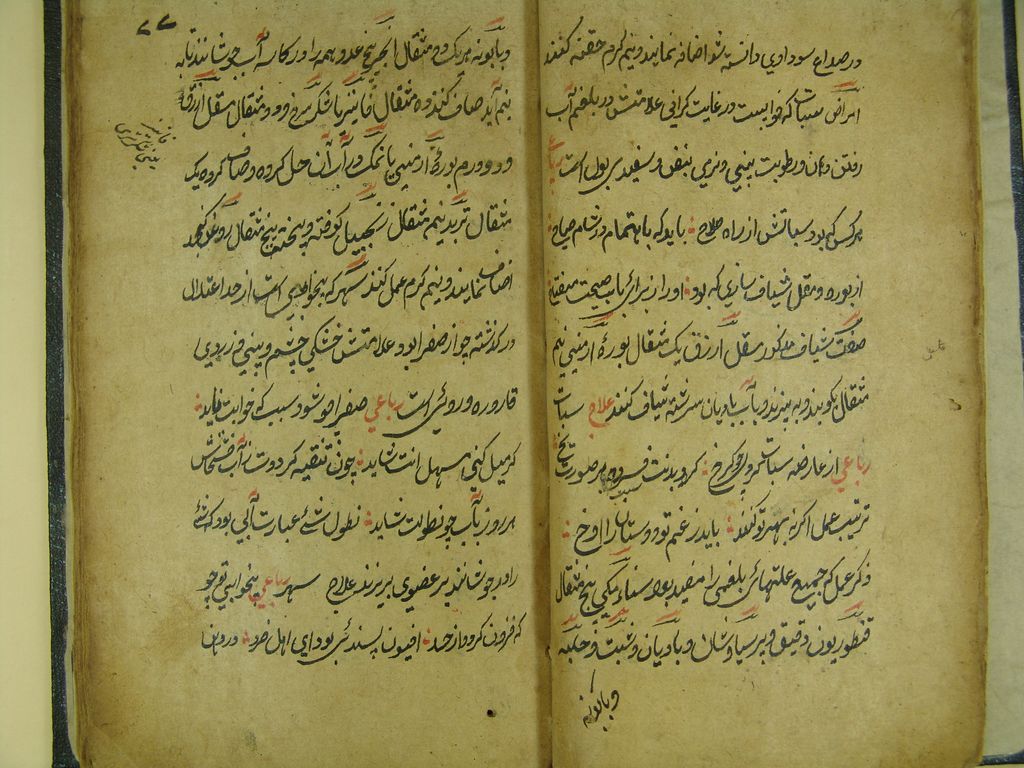 در صداع سوداوی دانسته شد اضافه نمایند و نیم گرم حقنه کنند
امراض سبات که خوابیست در غایت گرانی علامتش در بلغم آب
رفتن دهان و رطوبت بینی و نرمی نبض و سفیدی بول است رباعی
هر کس که بود سباتش از راه صلاح باید که باهتمام در شام و صباح
از بوره و مقل شیاف سازی که بود او را ز برای باب صحت مفتاح
صفت شیاف مذکور مقل ارزق یک مثقال بوره ارمنی نیم
مثقال بکوبند و به بیزند و بآب بادیان سرشته شیاف کنند علاج سبات
رباعی از عارضه سبات گرد بدنت فسرده بر صورت یخ
ترتیب عمل اگر نه بهر تو کنند باید ز غم تو دوستان را آوخ
ذکر عمل که جمیع علتهای بلغمی را مفید بود سناء مکی پنج مثقال
قنطوریون دقیق و پرسیاوشان و بادیان و شبت و حلبه
و بابونه
۲۲
و بابونه هر یک دو مثقال انجیر پنج عدد همه را در کاسه آب جوشانند تا به
نیم آید صاف کنند و ده مثقال فانیز یا شکر سرخ و دو مثقال مقل ارزق
و دو درم بوره ارمنی یا نمک در آب آن حل کرده و صاف کرده یک
مثقال تربد نیم مثقال زنجبیل کوفته و بیخته پنج مثقال روغن کنجد
اضافه نمایند و نیم گرم عمل کنند سهر که بیخوابی است از حد اعتدال
در گذشته چو از صفرا بود علامتش خشکی چشم و بینی و زردی
قاروره و روئی است رباعی صفرا چو شود سبب که خوابت ناید
گر میل کنی بمسهل انت شاید چون تنقیه کردت ز آب خشخاش
هر روز بآب جو نطولت شاید نطول شئ عبارت آبی بود که شئ
را در جوشانند و بر عضوی بریزند علاج سهر رباعی بیخوابی تو چو
که فزون گردد از حد افیون پسندئ بودای اهل خرد در روغن
فانیز
یعنی شکر تبرزی